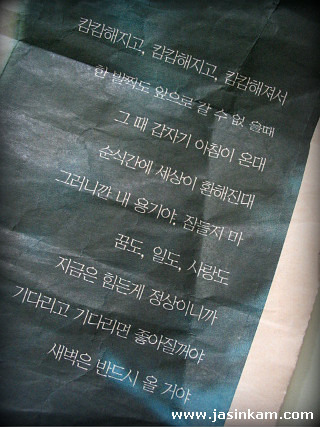 캄캄해지고, 캄캄해지고, 캄캄해져서
한 발짝도 앞으로 갈 수 없 을때
그 때 갑자기 아침이 온대
순식간에 세상이 환해진대
그러니깐 내 용기야, 잠들지 마
꿈도, 일도, 사랑도
지금은 힘든게 정상이니까
기다리고 기다리면 좋아질꺼야
새벽은 반드시 올 거야
www.jasinkam.com